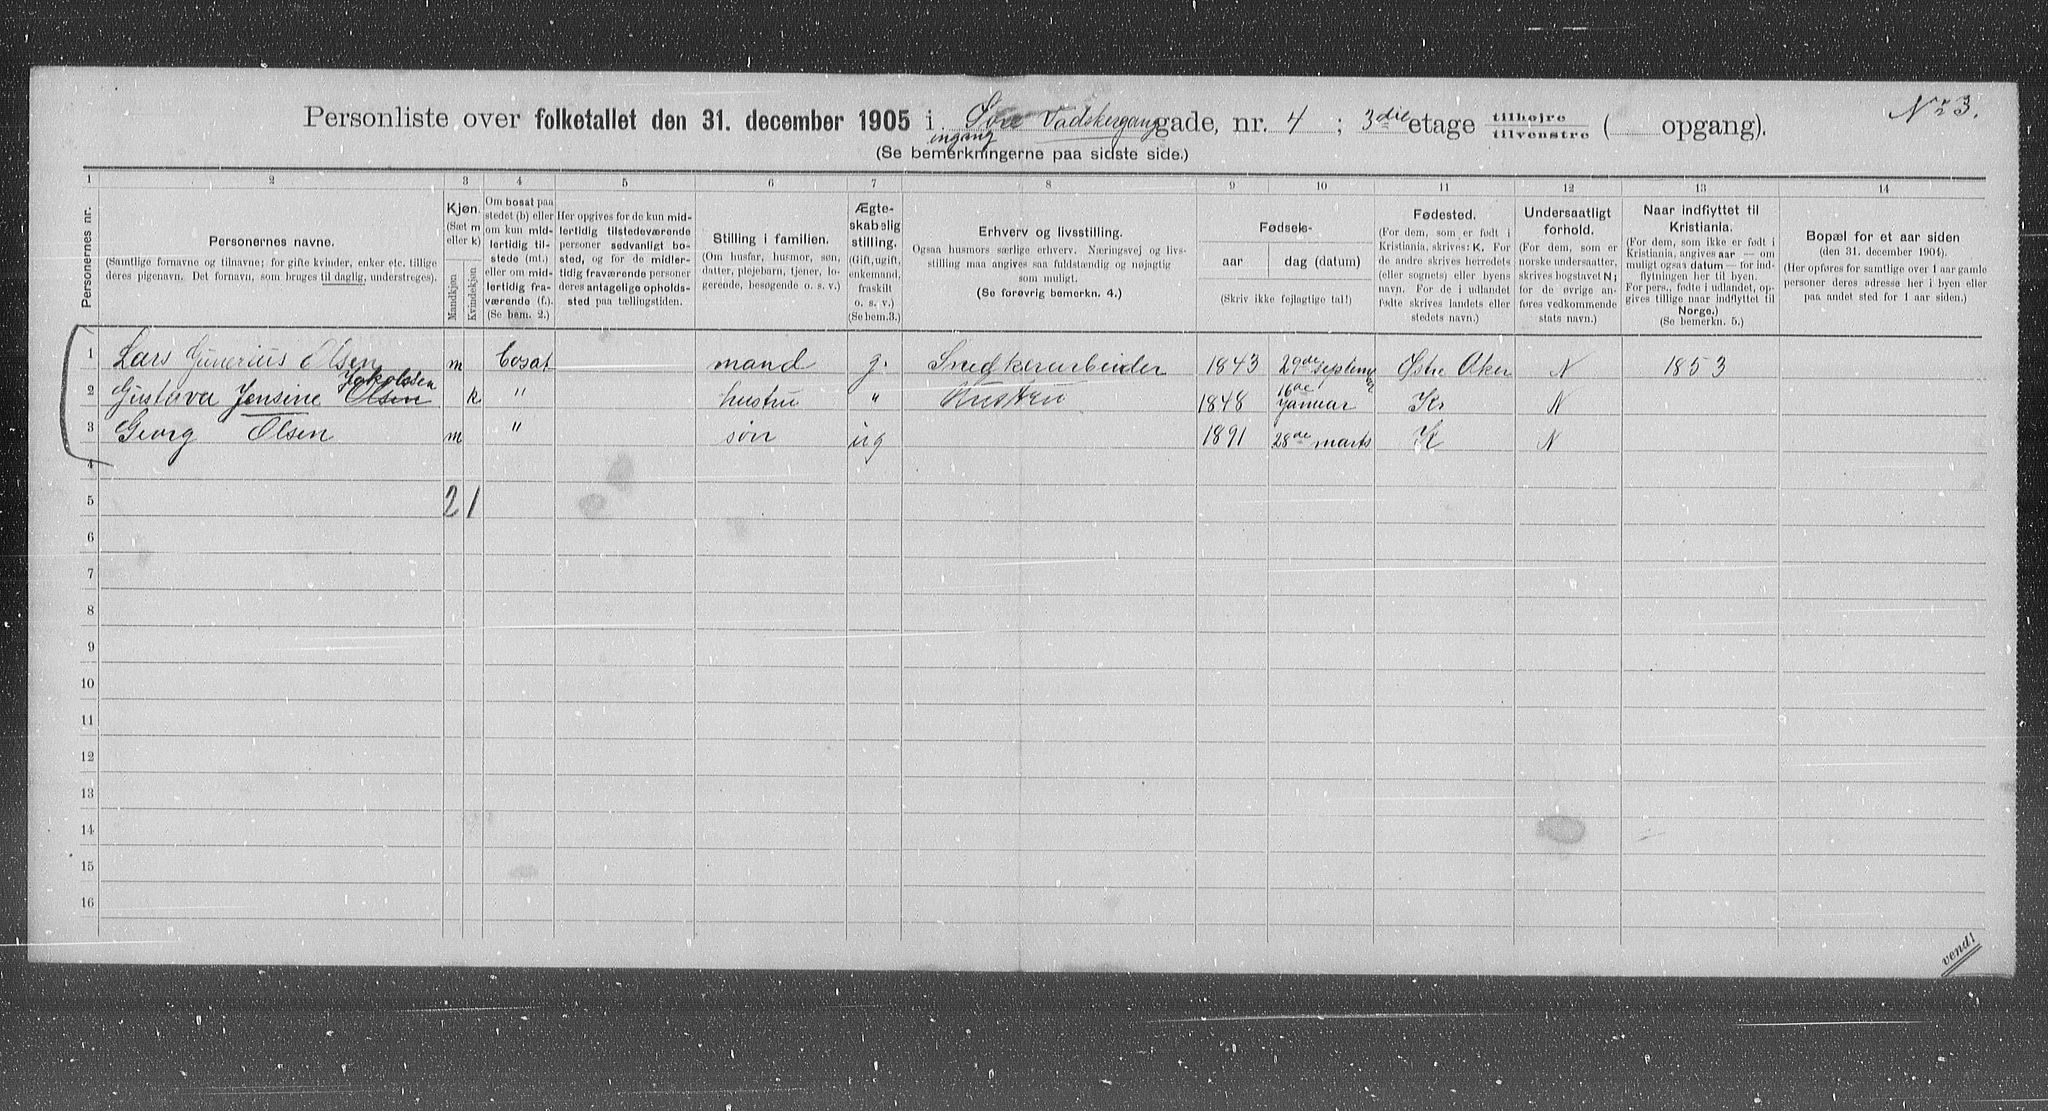 Nr 3.
Personliste over folketallet den 31. december 1905 i Vadskergang gade, nr. 4; 3die etage tilhøjre tilvenstre ( opgang).
ingang
(Se bemerkningerne paa sidste side.)
1 2 3 4 5 6 7 8 9 10 11 12 13 14
Personernes nr.
Personernes navne.
(Samtlige fornavne og tilnavne; for gifte kvinder, enker etc. tillige
deres pigenavn. Det fornavn, som bruges til daglig, understreges).
Kjøn.
(Sæt m
eller k)
Mandkjøn.
Kvindekjøn.
Om bosat paa
stedet (b) eller
om kun mid-
lertidig til-
stede (mt.)
eller om mid-
lertidig fra-
værende (f.).
(Se bem. 2.)
Her opgives for de kun mid-
lertidig tilstedeværende
personer sedvanligt bo-
sted, og for de midler-
tidig fraværende personer
deres antagelige opholds-
sted paa tællingstiden.
Stilling i familien.
(Om husfar, husmor, søn,
datter, plejebarn, tjener, lo-
gerende, besøgende o. s. v.)
Ægte-
skabelig
stilling.
(Gift, ugift,
enkemand,
fraskilt
o. s. v.)
(Se bem. 3.)
Erhverv og livsstilling.
Ogsaa husmors særlige erhverv. Næringsvej og livs-
stilling maa angives saa fuldstændig og nøjagtig
som muligt.
(Se forøvrig bemerkn. 4.)
Fødsels-
aar
dag (datum)
(Skriv ikke fejlagtige tal!)
Fødested.
(For dem, som er født i
Kristiania, skrives: K. For
de andre skrives herredets
(eller sognets) eller byens
navn. For de i udlandet
fødte skrives landets eller
stedets navn.)
Undersaatligt
forhold.
(For dem, som er
norske undersaatter,
skrives bogstavet N;
for de øvrige an-
føres vedkommende
stats navn.)
Naar indflyttet til
Kristiania.
(For dem, som ikke er født i
Kristiania, angives aar — om
muligt ogsaa datum — for ind-
flytningen her til byen.
For pers., fødte i udlandet, op-
gives tillige naar indflyttet til
Norge.)
(Se bemerkn. 5.)
Bopæl for et aar siden
(den 31. december 1904).
(Her opføres for samtlige over 1 aar gamle
personer deres adresse her i byen eller
paa andet sted for 1 aar siden.)
1 Lars Gunerius Olsen m bosat mand g. Snedkerarbeider 1843 29de september Østre Aker N 1853
Jakobsen
2 Gustava Jensine Olsen k " hustru " Hustru 1848 16de Januar Kr N
3 Georg Olsen m " søn ug 1891 28de marts K N
4
5 2 1
6
7
8
9
10
11
12
13
14
15
16
vend!